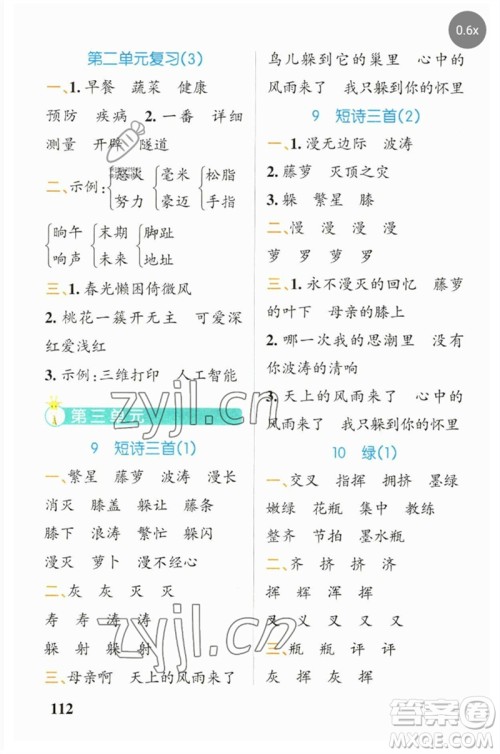 0.6x
第二单元复习(3)
一、1. 早餐 蔬菜 健康
预防 疾病 2. 一番 详细
测量 开辟 隧道
二、示例: 怒火 毫米 松脂
努力 豪迈 手指
晌午 末期 脚趾
响声 未来 地址
三、1. 春光懒困倚微风
2. 桃花一簇开无主 可爱深
红爱浅红
3. 示例: 三维打印 人工智能
第三单元
9 短诗三首(1)
一、繁星 藤萝 波涛 漫长
消灭 膝盖 躲让 藤条
膝下 浪涛 繁忙 躲闪
漫灭 萝卜 漫不经心
二、灰 灰 灭 灭
寿 寿 涛 涛
躲 射 躲 射
三、母亲啊 天上的风雨来了
鸟儿躲到它的巢里 心中的
风雨来了 我只躲到你的怀里
9 短诗三首(2)
一、1. 漫无边际 波涛
2. 藤萝 灭顶之灾
3. 躲 繁星 膝
二、慢 漫 漫 慢
萝 罗 萝 罗
三、1. 永不漫灭的回忆 藤萝
的叶下 母亲的膝上
2. 如果我的思潮里 没有
你波涛的清响
3. 天上的风雨来了 鸟儿
躲到它的巢里 心中的风雨
来了 我只躲到你的怀里
10 绿(1)
一、交叉 指挥 拥挤 墨绿
嫩绿 花瓶 集中 教练
整齐 节拍 墨水瓶
二、挥 辉 浑 挥
叉 又 叉 又 叉
三、瓶 瓶 评 评
灰 挥 灰 挥
112
zyjl.cn
zyjl.cn
答案圈
MXQE.COM